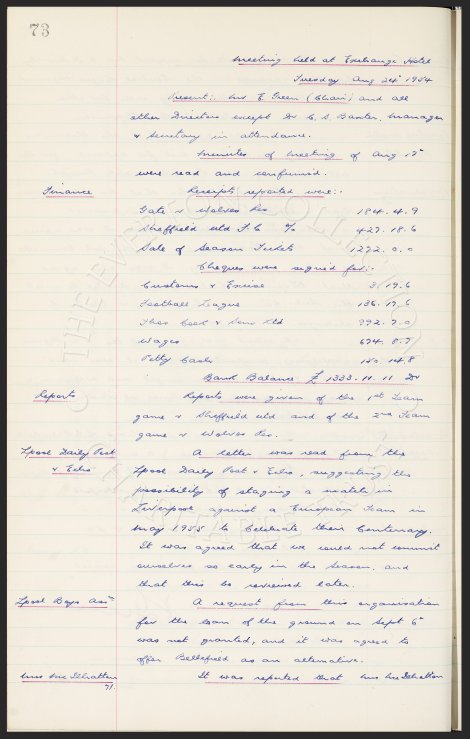 73
Meeting held at Exchange Hotel
Tuesday Aug 24th 1954
Present:- Mr E. Green (Chair) and all
other Directors except Dr C. S. Baxter. Manager
& Secretary in attendance.
Minutes of Meeting of Aug 17th
were read and confirmed.
Finance
Receipts reported were:-
Gate v Wolves Res 184. 4. 9
Sheffield Utd F.C. 427. 18. 6
Sale of Season Tickets 1272. 0. 0
Cheques were signed for:-
Customs & Excise 3. 19. 6
Football League 136. 17. 6
Thos Cook & Sons Ltd 992. 7. 0
Wages 674. 8. 7
Petty Cash 14.8
Bank Balance £ 1333. 11. 11 Dr
Reports
Reports were given of the 1st Team
game v Sheffield Utd and of the 2nd Team
game v Wolves Res.
Lpool Daily Post
& Echo
A letter was read from the
Lpool Daily Post & Echo, suggesting the
possibility of staging a match in
Liverpool against a European Team in
May 1955 to celebrate their Centenary.
It was agreed that we could not commit
ourselves so early in the season, and
that this be reviewed later.
Lpool Boys Assn
A request from this organisation
for the loan of the ground on Sept 6th
was not granted, and it was agreed to
offer Bellefield as an alternative.
71.
It was reported that
THE EVERTON COLLECTION